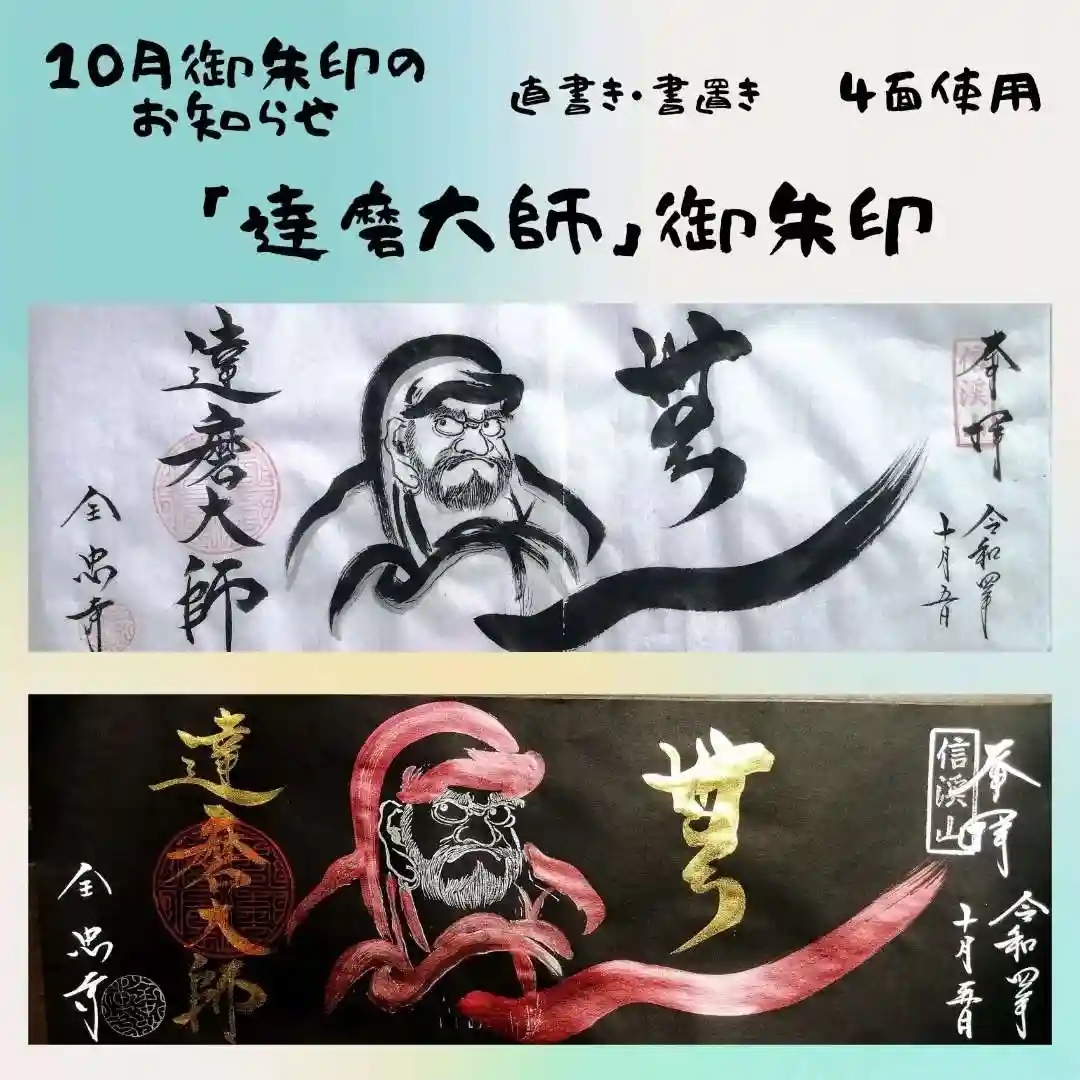 10月御朱印の
お知らせ
直書き・書置き
4面使用
「達磨大師」御朱印
奉拝
信渓
令和四年
十月五日
無
達磨大師
全忠寺
奉拝
信渓山
令和四年
十月五日
無
達磨大師
全忠寺